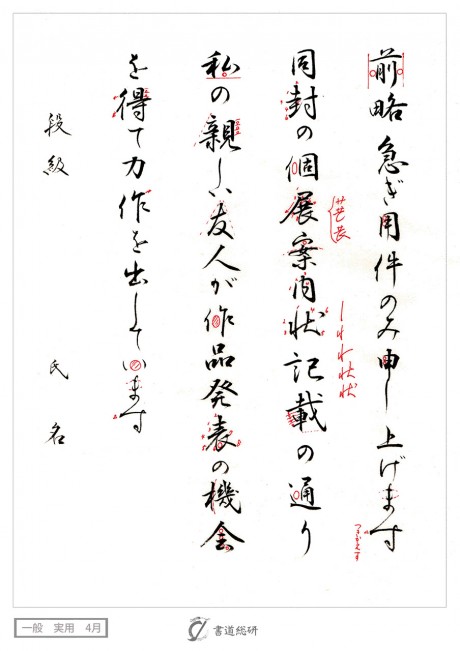 前略 急ぎ用件のみ申し上げます
同封の個展案内状記載の通り
私の親しい友人が作品発表の機会
を得て力作を出しています
段級 氏名
一般 実用 4月
書道総研